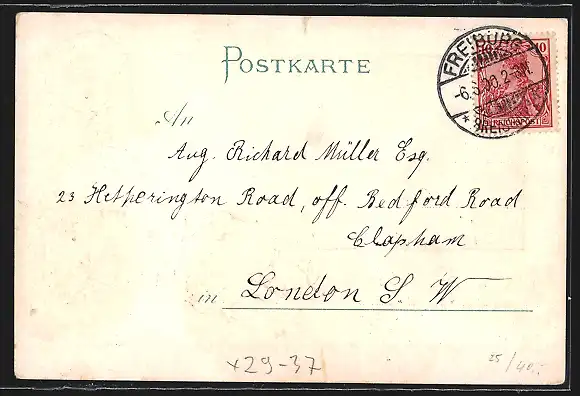 POSTKARTE
FREIBURG
10
-6.5.00.2-3N.
* BREIS
REICHSPOST
An
Aug. Richard Müller Esq.
23 Hetherington Road, off. Bedford Road
Clapham
in London S. W.
x29-37
25/40.-